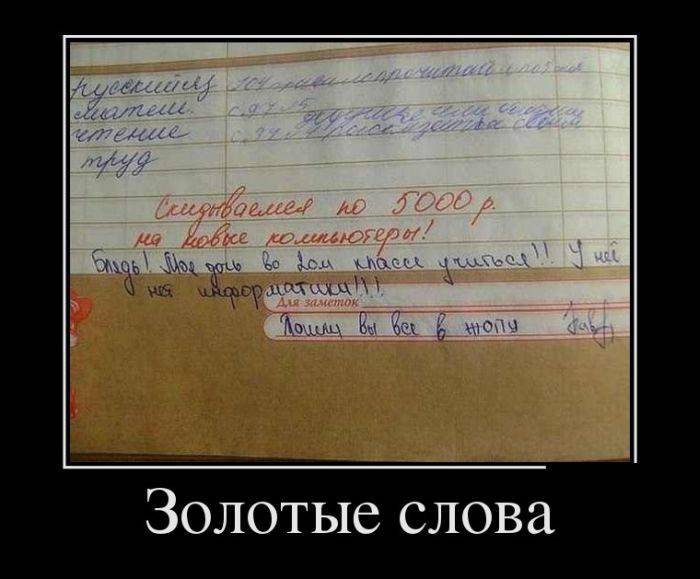 русский яз 104 правило прочитать
матем. с. 97 №5
чтение с. 34
труд
Скидываемся по 5000 р.
на новые компьютеры!
Блядь! Моя дочь во 2ом классе учиться!! У неё
нет информатики!!!
Для заметок
Пошли вы все в жопу
Золотые слова